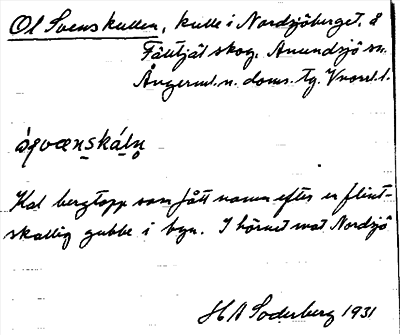 Ol Svenskullen, kulle i Nordsjöberget å
Fälltjäl skog. Anundsjö sn.
Ångerml. n. doms. tg. Vnorrl. l.
Kal bergtopp som fått namn efter en flint-
skallig gubbe i byn. I hörnet mot Nordsjö
H A Söderberg 1931